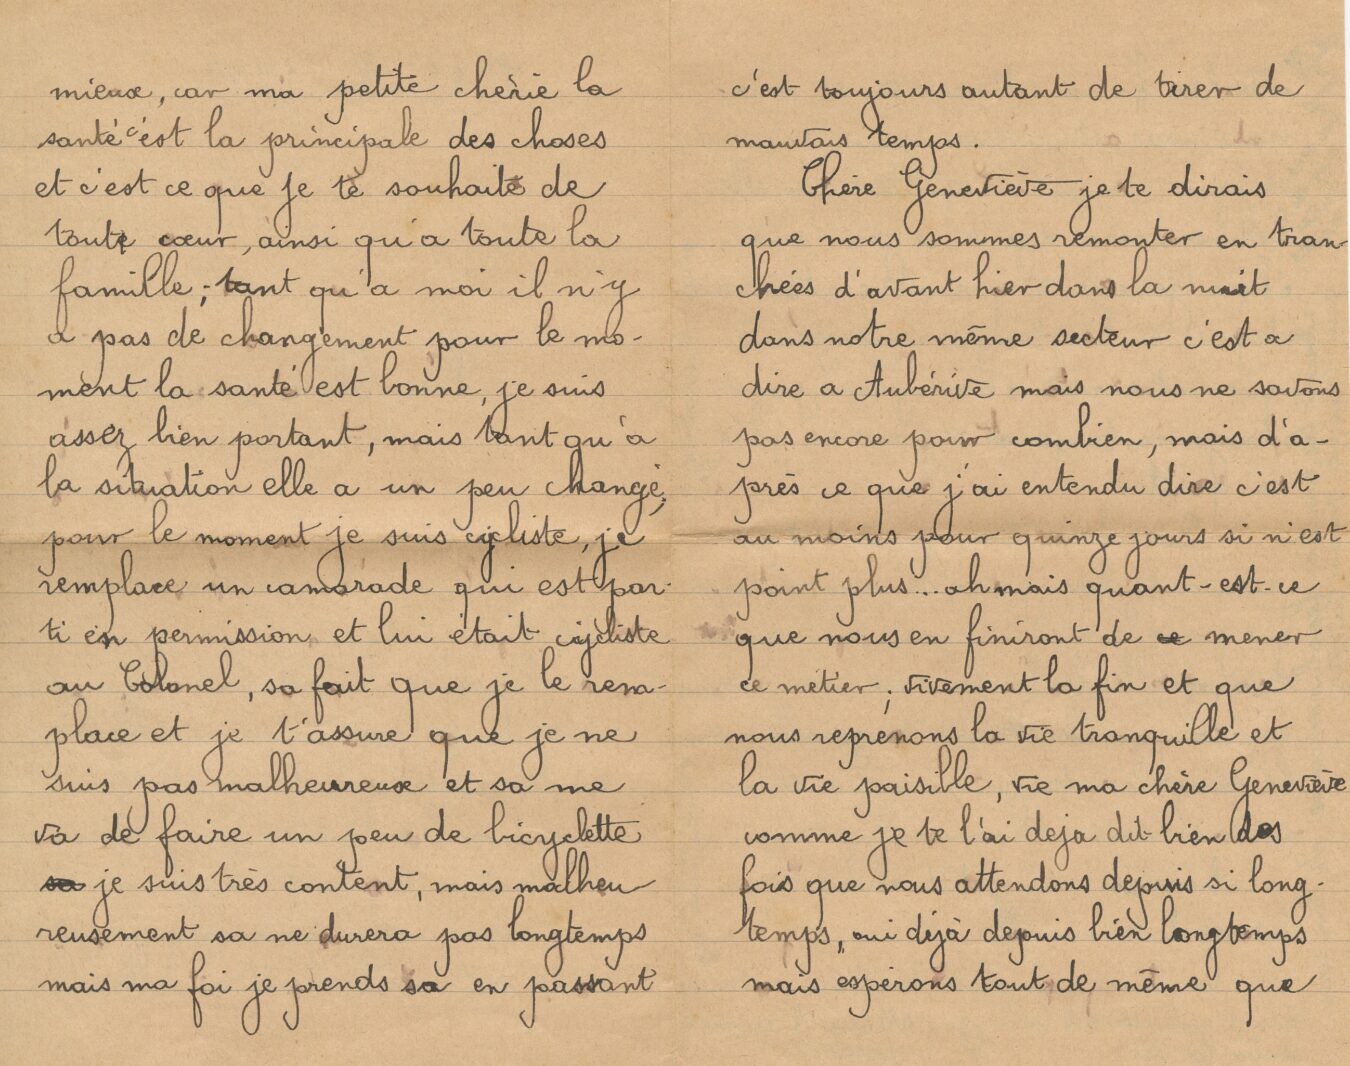 mieux, car ma petite chérie la
santé c'est la principale des choses
et c'est ce que je te souhaite de
toute cœur, ainsi qu'a toute la
famille ; tant qu'a moi il n'y
a pas de changement pour le mo-
ment la santé est bonne, je suis
assez bien portant, mais tant qu'a
la situation elle a un peu changé,
pour le moment je suis cycliste, je
remplace un camarade qui est par-
ti en permission et lui était cycliste
au Colonel, sa fait que je le rem-
place et je t'assure que je ne
suis pas malheureux et sa me
va de faire un peu de bicyclette
sa je suis très content, mais malheu-
reusement sa ne durera pas longtemps
mais ma foi je prends sa en passant
c'est toujours autant de tirer de
mauvais temps.
Chère Geneviève je te dirais
que nous sommes remonter en tran-
chées d'avant hier dans la nuit
dans notre même secteur c'est a
dire a Aubérive mais nous ne savons
pas encore pour combien, mais d'a-
près ce que j'ai entendu dire c'est
au moins pour quinze jours si n'est
point plus... ah mais quant-est-ce
que nous en finiront de ce mener
ce métier ; vivement la fin et que
nous reprenons la vie tranquille et
la vie paisible, vie ma chère Geneviève
comme je te l'ai deja dit bien des
fois que nous attendons depuis si long-
temps, oui déjà depuis bien longtemps
mais espérons tout de même que